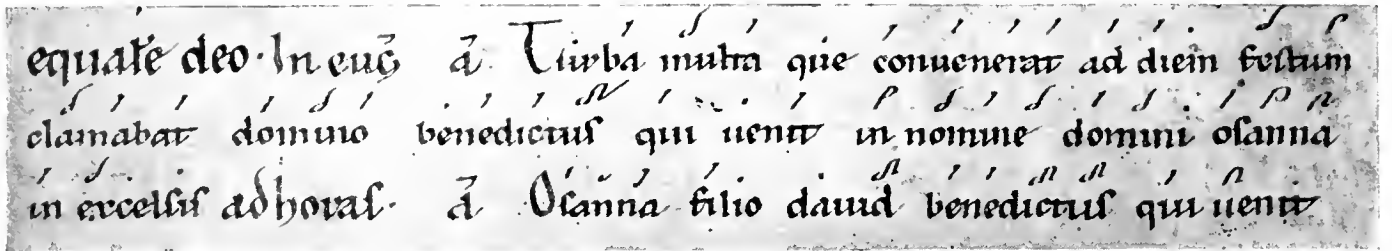 equale deo. In eug̅ a̅. Turba multa que conuenerat ad diem festum
clamabat domino benedictuſ qui uenit in nomine domini oſanna
in excelſiſ ad horaſ. a̅. Oſanna filio dauid benedictuſ qui uenit